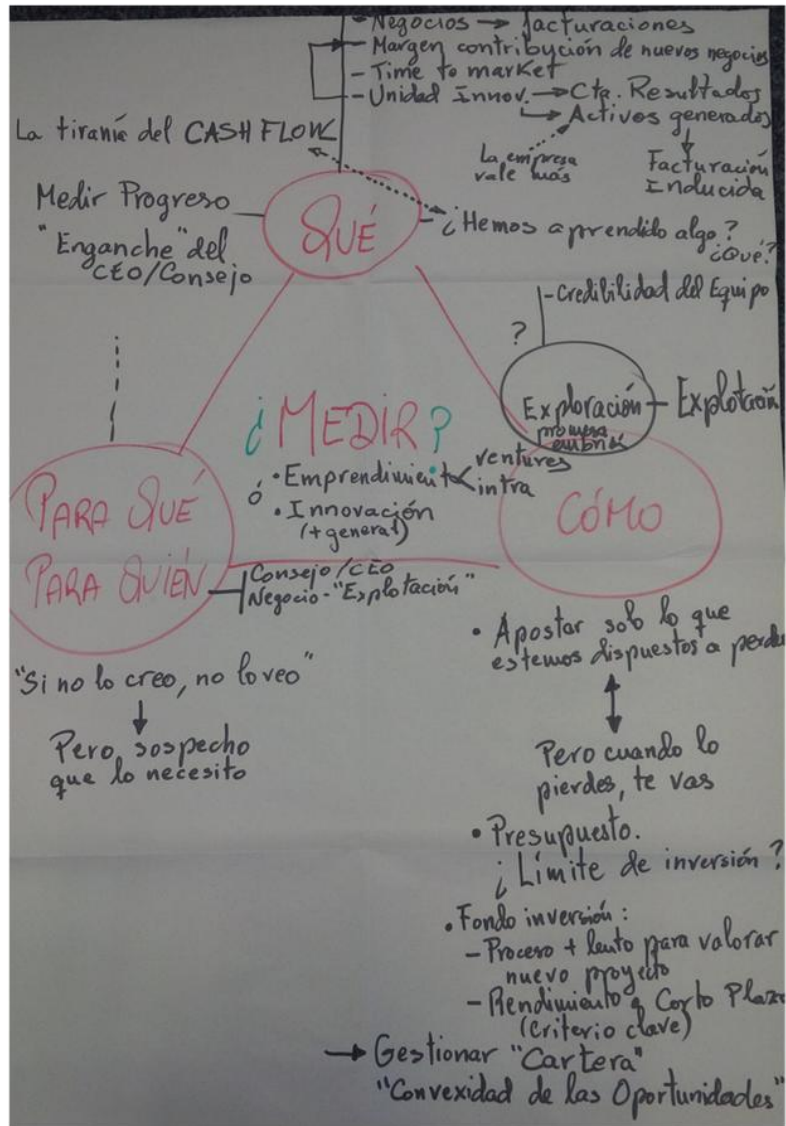 - Negocios → facturaciones
- Margen contribución de nuevos negocios
- Time to market
- Unidad Innov. → Cta. Resultados
→ Activos generados
La empresa
vale más
Facturación
Inducida
La tiranía del CASH FLOW
Medir Progreso
"Enganche" del
CEO/Consejo
QUÉ
- ¿Hemos aprendido algo?
¿Qué?
- Credibilidad del Equipo
?
Exploración - Explotación
¿MEDIR?
• Emprendimiento
ventures
intra
ó
• Innovación
(+ general)
PARA QUÉ
PARA QUIÉN
Consejo/CEO
Negocio - "Explotación"
CÓMO
"Si no lo creo, no lo veo"
Pero sospecho
que lo necesito
• Apostar solo lo que
estemos dispuestos a perder
Pero cuando lo
pierdes, te vas
• Presupuesto.
¿Límite de inversión?
• Fondo inversión:
- Proceso + lento para valorar
nuevo proyecto
- Rendimiento a Corto Plazo
(criterio clave)
→ Gestionar "Cartera"
"Convexidad de las Oportunidades"